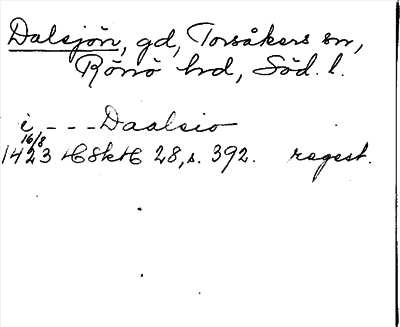 Dalsjön, gd, Torsåkers sn,
Rönö hd, Söd. l.
i - - - Daalsio
16/8
1423 HSkH 28, s. 392. regest.